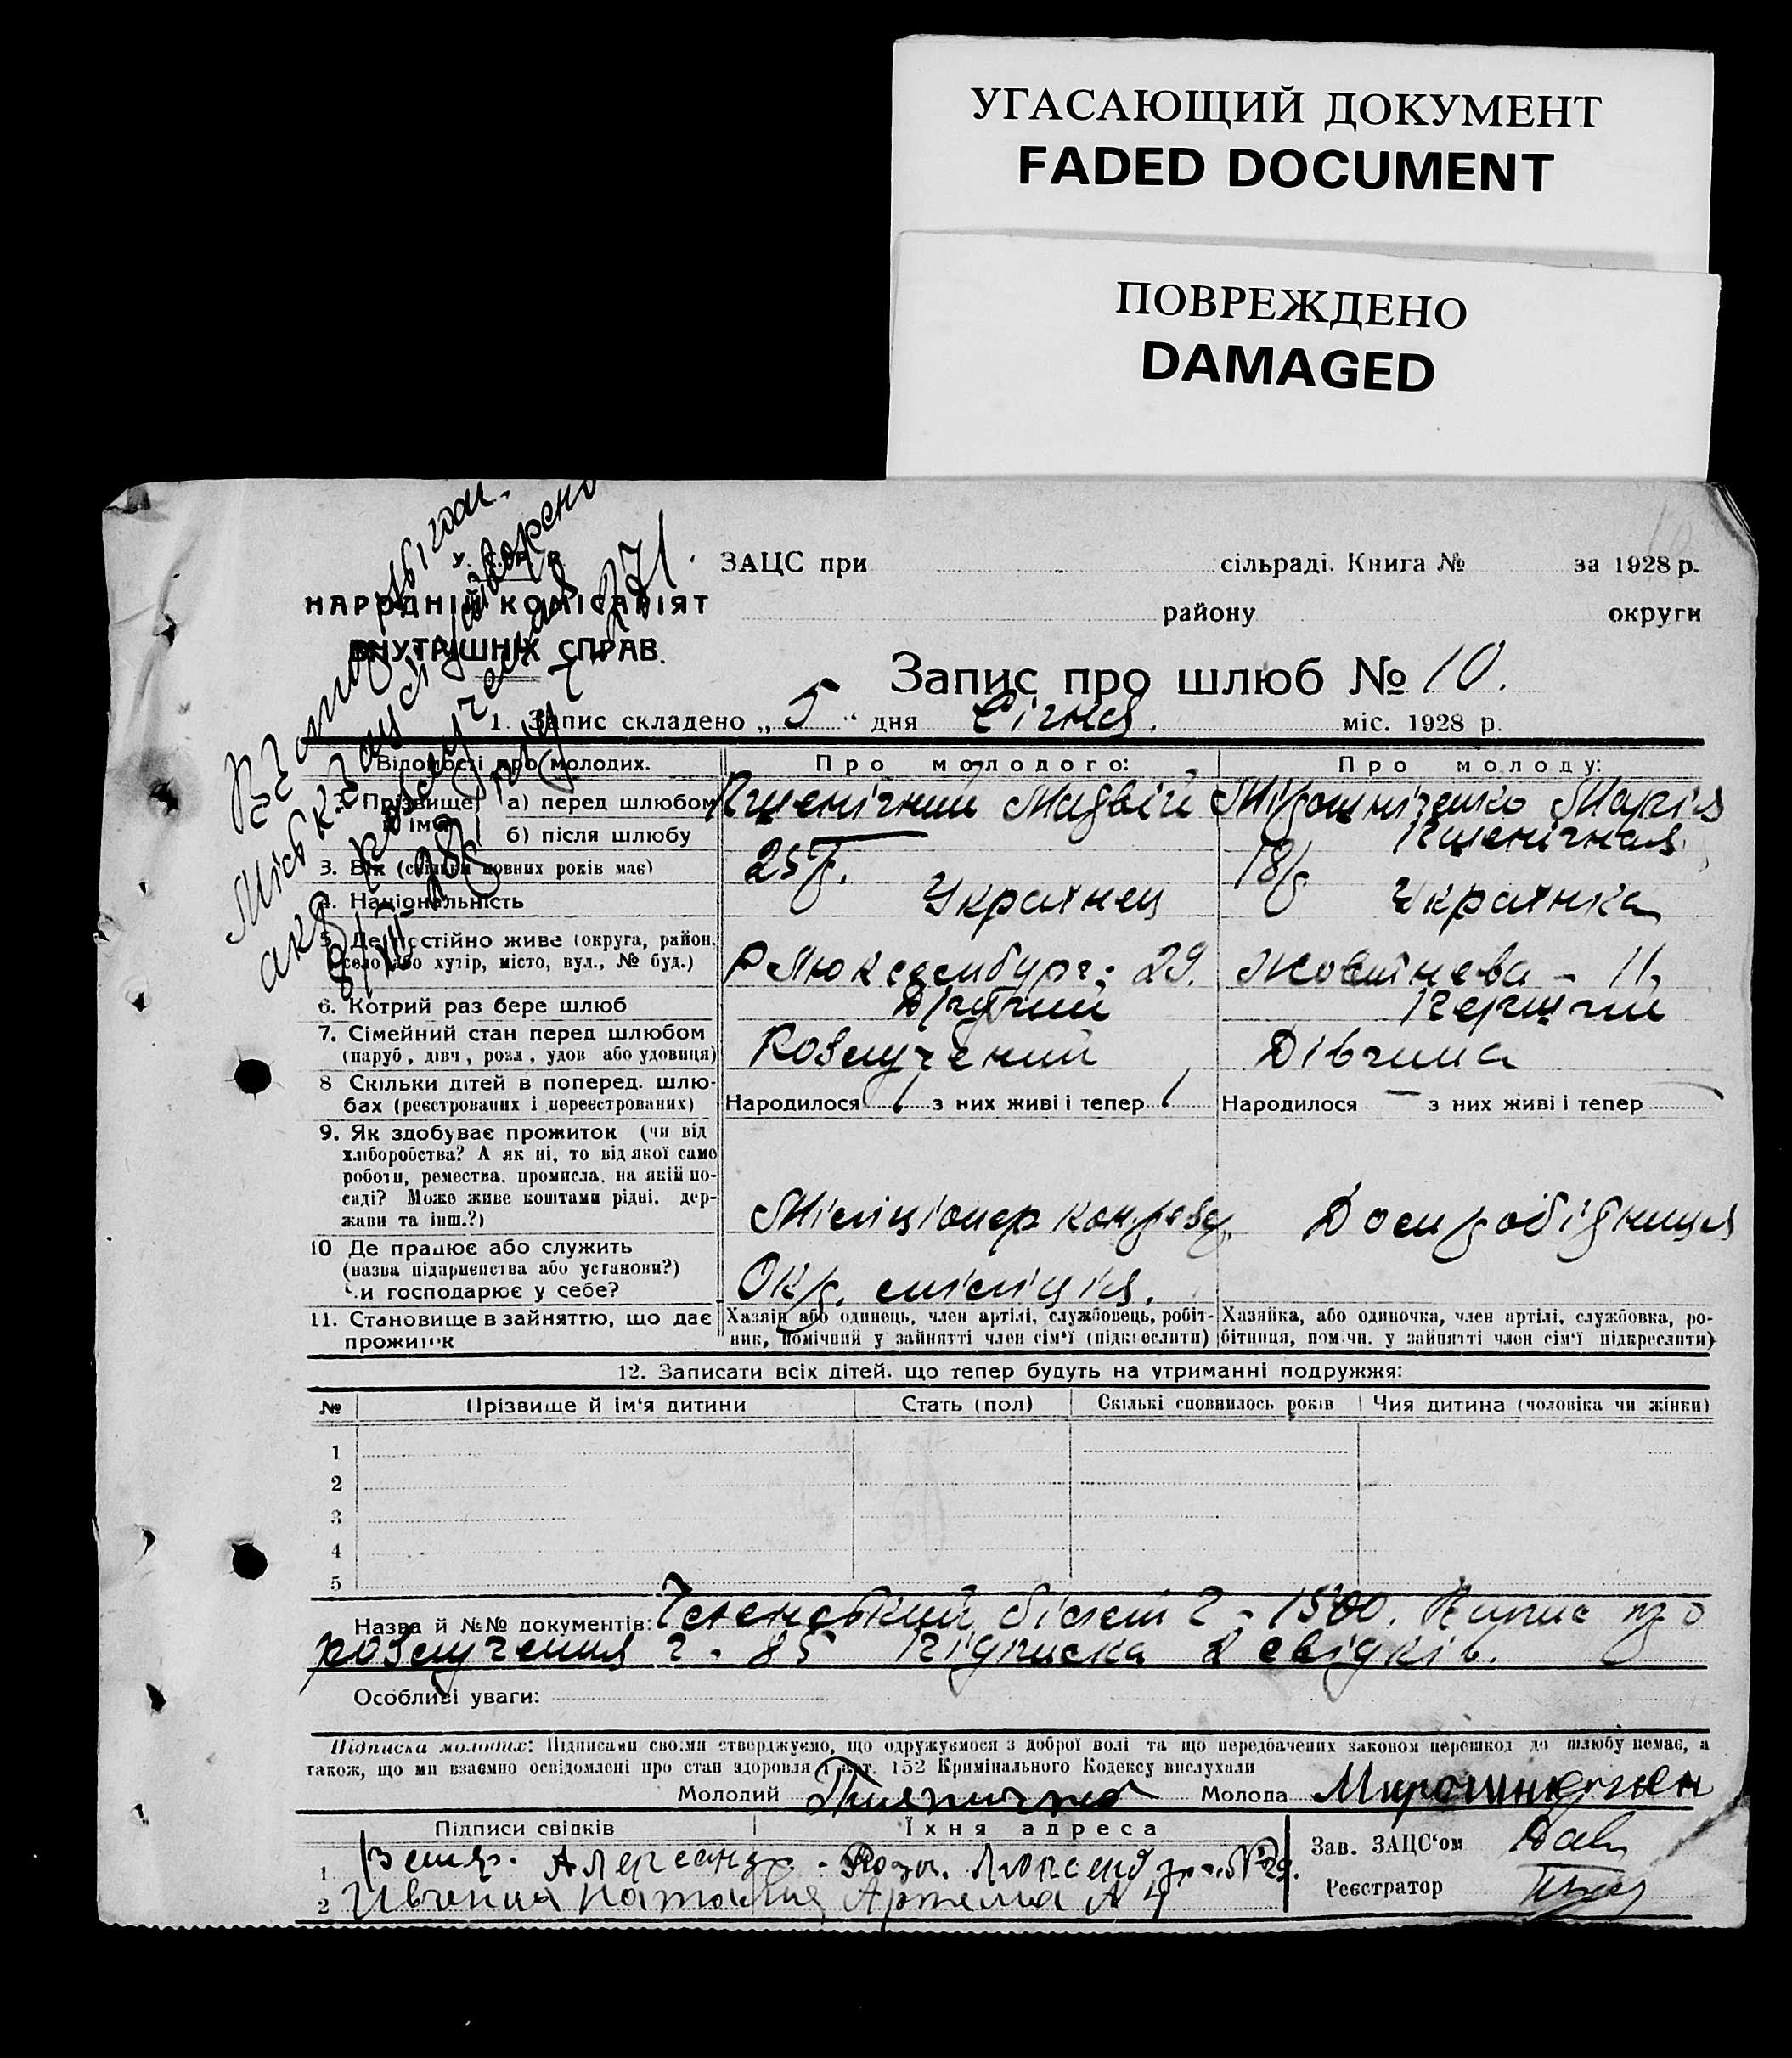 УГАСАЮЩИЙ ДОКУМЕНТ
FADED DOCUMENT
ПОВРЕЖДЕНО
DAMAGED
НАРОДНІЙ КОМІСАРІЯТ
ВНУТРІШНІХ СПРАВ.
ЗАЦС при сільраді. Книга № за 1928 р.
району округи
Запис про шлюб № 10.
1. Запис складено „5“ дня Січня. міс. 1928 р.
Відомості про молодих. Про молодого: Про молоду:
2. Прізвище й ім'я а) перед шлюбом Пшенічний Мадвій Мірошніченко Марія
б) після шлюбу Пшенічная
3. Вік (скільки повних років має) 25 18
4. Національність Украінец Украінка
5. Де постійно живе (округа, район, село або хутір, місто, вул., № буд.) Р Люксембург. 29. Жовтнева - 11
6. Котрий раз бере шлюб Другий Перший
7. Сімейний стан перед шлюбом Розлучений Дівчина
(паруб., дівч., розл., удов або удовиця)
8 Скільки дітей в поперед. шлю-
бах (реєстрованих і нереєстрованих) Народилося 1 з них живі і тепер 1 Народилося — з них живі і тепер
9. Як здобуває прожиток (чи від
хліборобства? А як ні, то від якої само
роботи, ремества, промисла, на якій по-
саді? Може живе коштами рідні, дер-
жави та інш.?) Міліціонер Домробітниця
10 Де працює або служить
(назва підприємства або установи?)
Чи господарює у себе? Окр. міліція.
11. Становище в зайняттю, що дає
прожиток
Хазяїн або одинець, член артілі, службовець, робіт-
ник, помічний у зайнятті член сім'ї (підкреслити)
Хазяйка, або одиночка, член артілі, службовка, ро-
бітниця, пом.чн. у зайнятті член сім'ї підкреслити)
12. Записати всіх дітей. що тепер будуть на утриманні подружжя:
№ Прізвище й ім'я дитини Стать (пол) Скількі сповнилось років Чия дитина (чоловіка чи жінки)
1
2
3
4
5
Назва й №№ документів: Членський білет 2 - 1500. Випис про
розлучення 2. 85 Підписка 2 свідків.
Особливі уваги:
Підписка молодих: Підписами своїми стверджуємо, що одружуємося з доброї волі та що передбачених законом перешкод до шлюбу немає, а
також, що ми взаємно освідомлені про стан здоровля і арт. 152 Кримінального Кодексу вислухали
Молодий Молода
Підписи свідків Їхня адреса
1 Роза. Люксембург №29.
2 Артема № 4
Зав. ЗАЦС'ом
Реєстратор